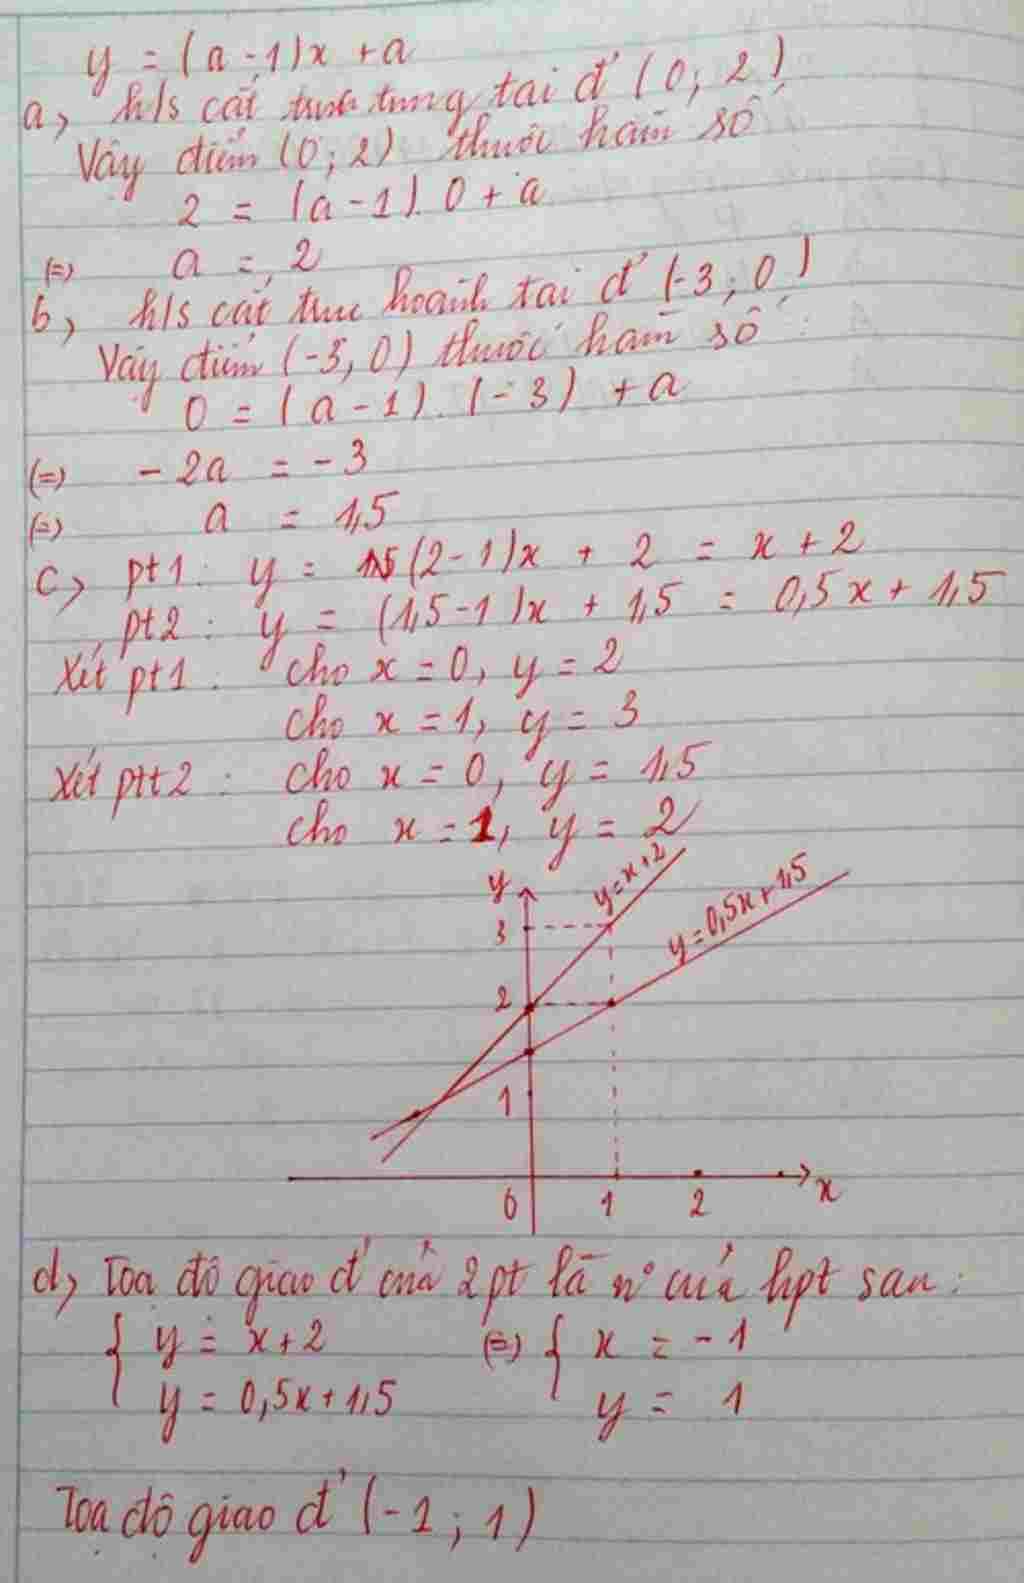 y = (a-1)x + a
a, h/s cắt trục tung tại đ' (0; 2)
Vậy điểm (0; 2) thuộc hàm số
2 = (a-1). 0 + a
(=) a = 2
b, h/s cắt trục hoành tại đ' (-3; 0)
Vậy điểm (-3, 0) thuộc hàm số:
0 = (a-1). (-3) + a
(=) -2a = -3
(=) a = 1,5
c, pt1: y = (2-1)x + 2 = x+2
pt2: y = (1,5-1)x + 1,5 = 0,5x + 1,5
Xét pt1: cho x = 0, y = 2
cho x = 1, y = 3
Xét ptt2: cho x = 0, y = 1,5
cho x = 1, y = 2
y
y=x+2
y=0,5x+1,5
3
2
1
0 1 2 x
d, Tọa độ giao đ' của 2pt là n° của hpt sau:
{ y = x+2 (=) { x = -1
y = 0,5x+1,5 y = 1
Tọa độ giao đ' (-1; 1)